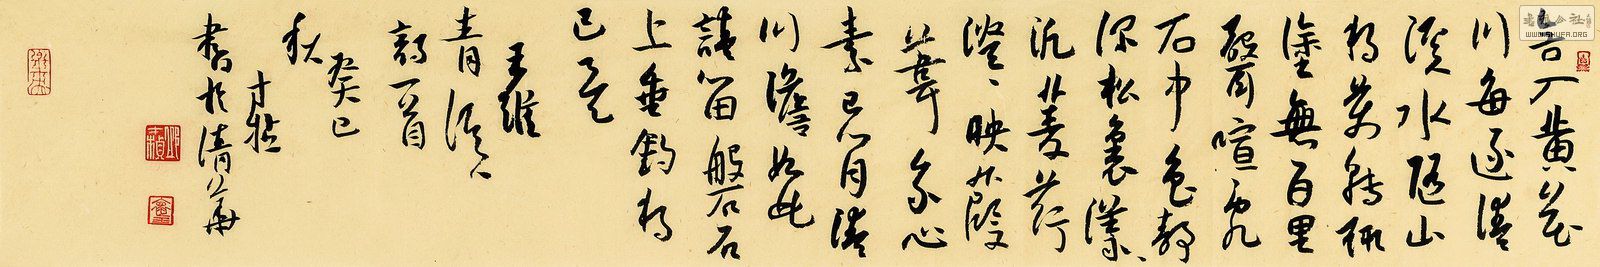 言入黄花
川每逐清
溪水随山
将萬轉趣
塗無百里
聲喧亂
石中色静
深松裏漾、
泛菱荇
澄、映葭
葦我心
素已閒清
川澹如此
請留磐石
上垂釣将
已矣
王維
青溪
詩一首
癸巳
秋
書於清華
WWW.SHUFA.ORG